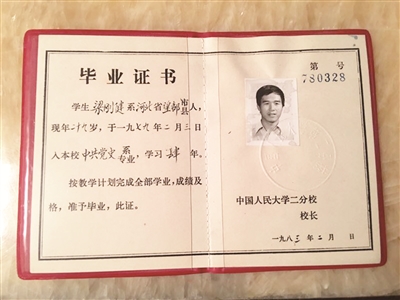 毕业证书
学生梁刚建系河北省望都市县人，
现年二十九岁，于一九七九年二月三日
入本校中共党史系专业，学习肆年。
按教学计划完成全部学业，成绩及
格，准予毕业，此证。
第 号
780328
中国人民大学二分校
校长
一九八三年二月 日